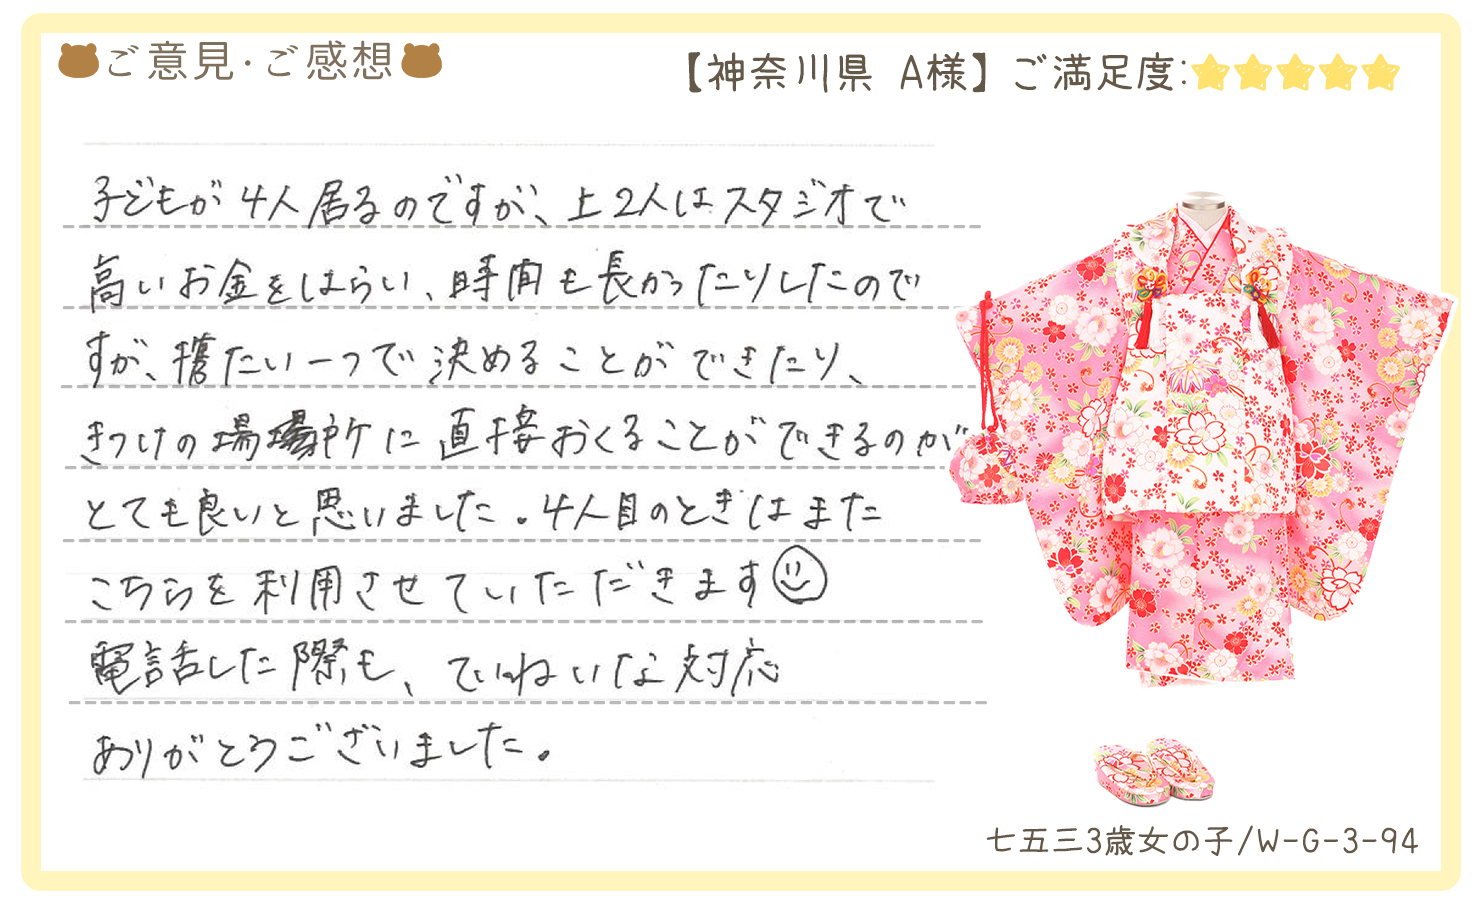 ご意見・ご感想
【神奈川県 A様】ご満足度:
子どもが4人居るのですが、上2人はスタジオで
高いお金をはらい、時間も長かったりしたので
すが、着たい一つで決めることができたり、
きつけの場所に直接おくることができるのが
とても良いと思いました。4人目のときはまた
こちらを利用させていただきます
電話した際も、ていねいな対応
ありがとうございました。
七五三3歳女の子/W-G-3-94